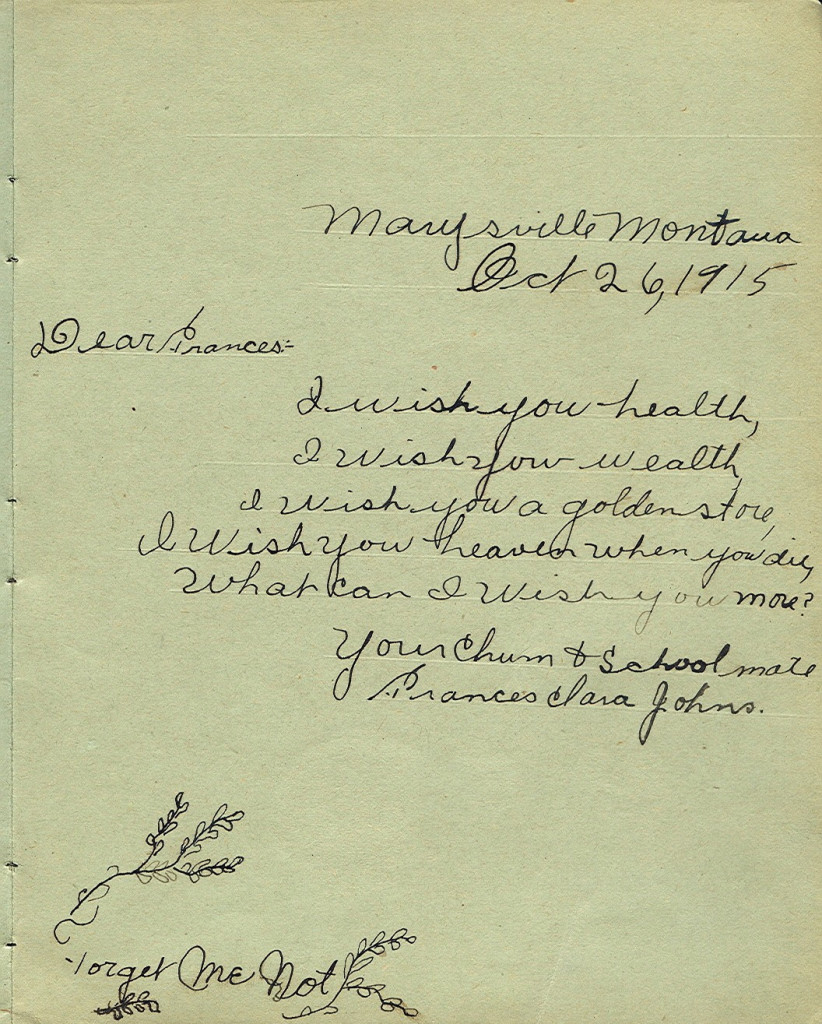 Marysville Montana
Oct 26, 1915
Dear Frances:-
I wish you health,
I wish you wealth,
I wish you a golden store,
I Wish You heaven when you die,
What can I Wish you more?
Your Chum & School mate
Frances Clara Johns.
Forget Me Not